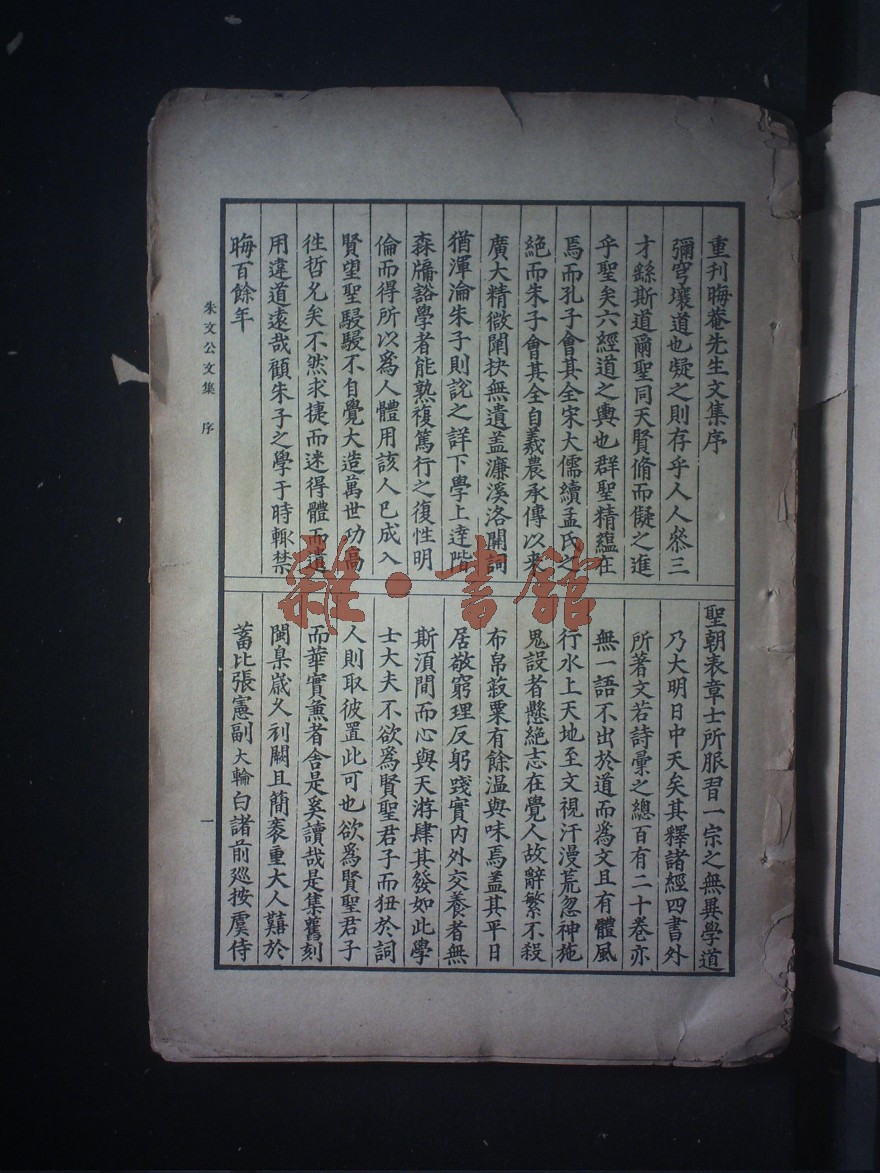 重刊晦菴先生文集序
彌穹壤道也凝之則存乎人人叅三
才繇斯道爾聖同天賢脩而儗之進
乎聖矣六經道之輿也群聖精蘊在
焉而孔子會其全宋大儒續孟氏之
絶而朱子會其全自羲農承傳以来
廣大精微闡抉無遺盖濂溪洛關詞
猶渾淪朱子則說之詳下學上達階
森牖谿學者能熟複篤行之復性明
倫而得所以爲人體用該人已成入
賢望聖駸駸不自覺大造萬世功高
徃哲允矣不然求捷而迷得體而遺
用違道遠哉顧朱子之學于時輒禁
晦百餘年
聖朝表章士所服習一宗之無異學道
乃大明日中天矣其釋諸經四書外
所著文若詩彙之總百有二十卷亦
無一語不出於道而為文且有體風
行水上天地至文視汗漫荒忽神施
鬼設者懸絶志在覺人故辭繁不殺
布帛菽粟有餘温與味焉盖其平日
居敬窮理反躬踐實内外交養者無
斯須間而心與天游肆其發如此學
士大夫不欲爲賢聖君子而狃於詞
人則取彼置此可也欲爲賢聖君子
而華實兼者舍是奚讀哉是集舊刻
閩臬嵗乆刓闕且簡袠重大人囏於
蓄比張憲副大輪白諸前廵按虞侍
朱文公文集 序
一
雜·書館